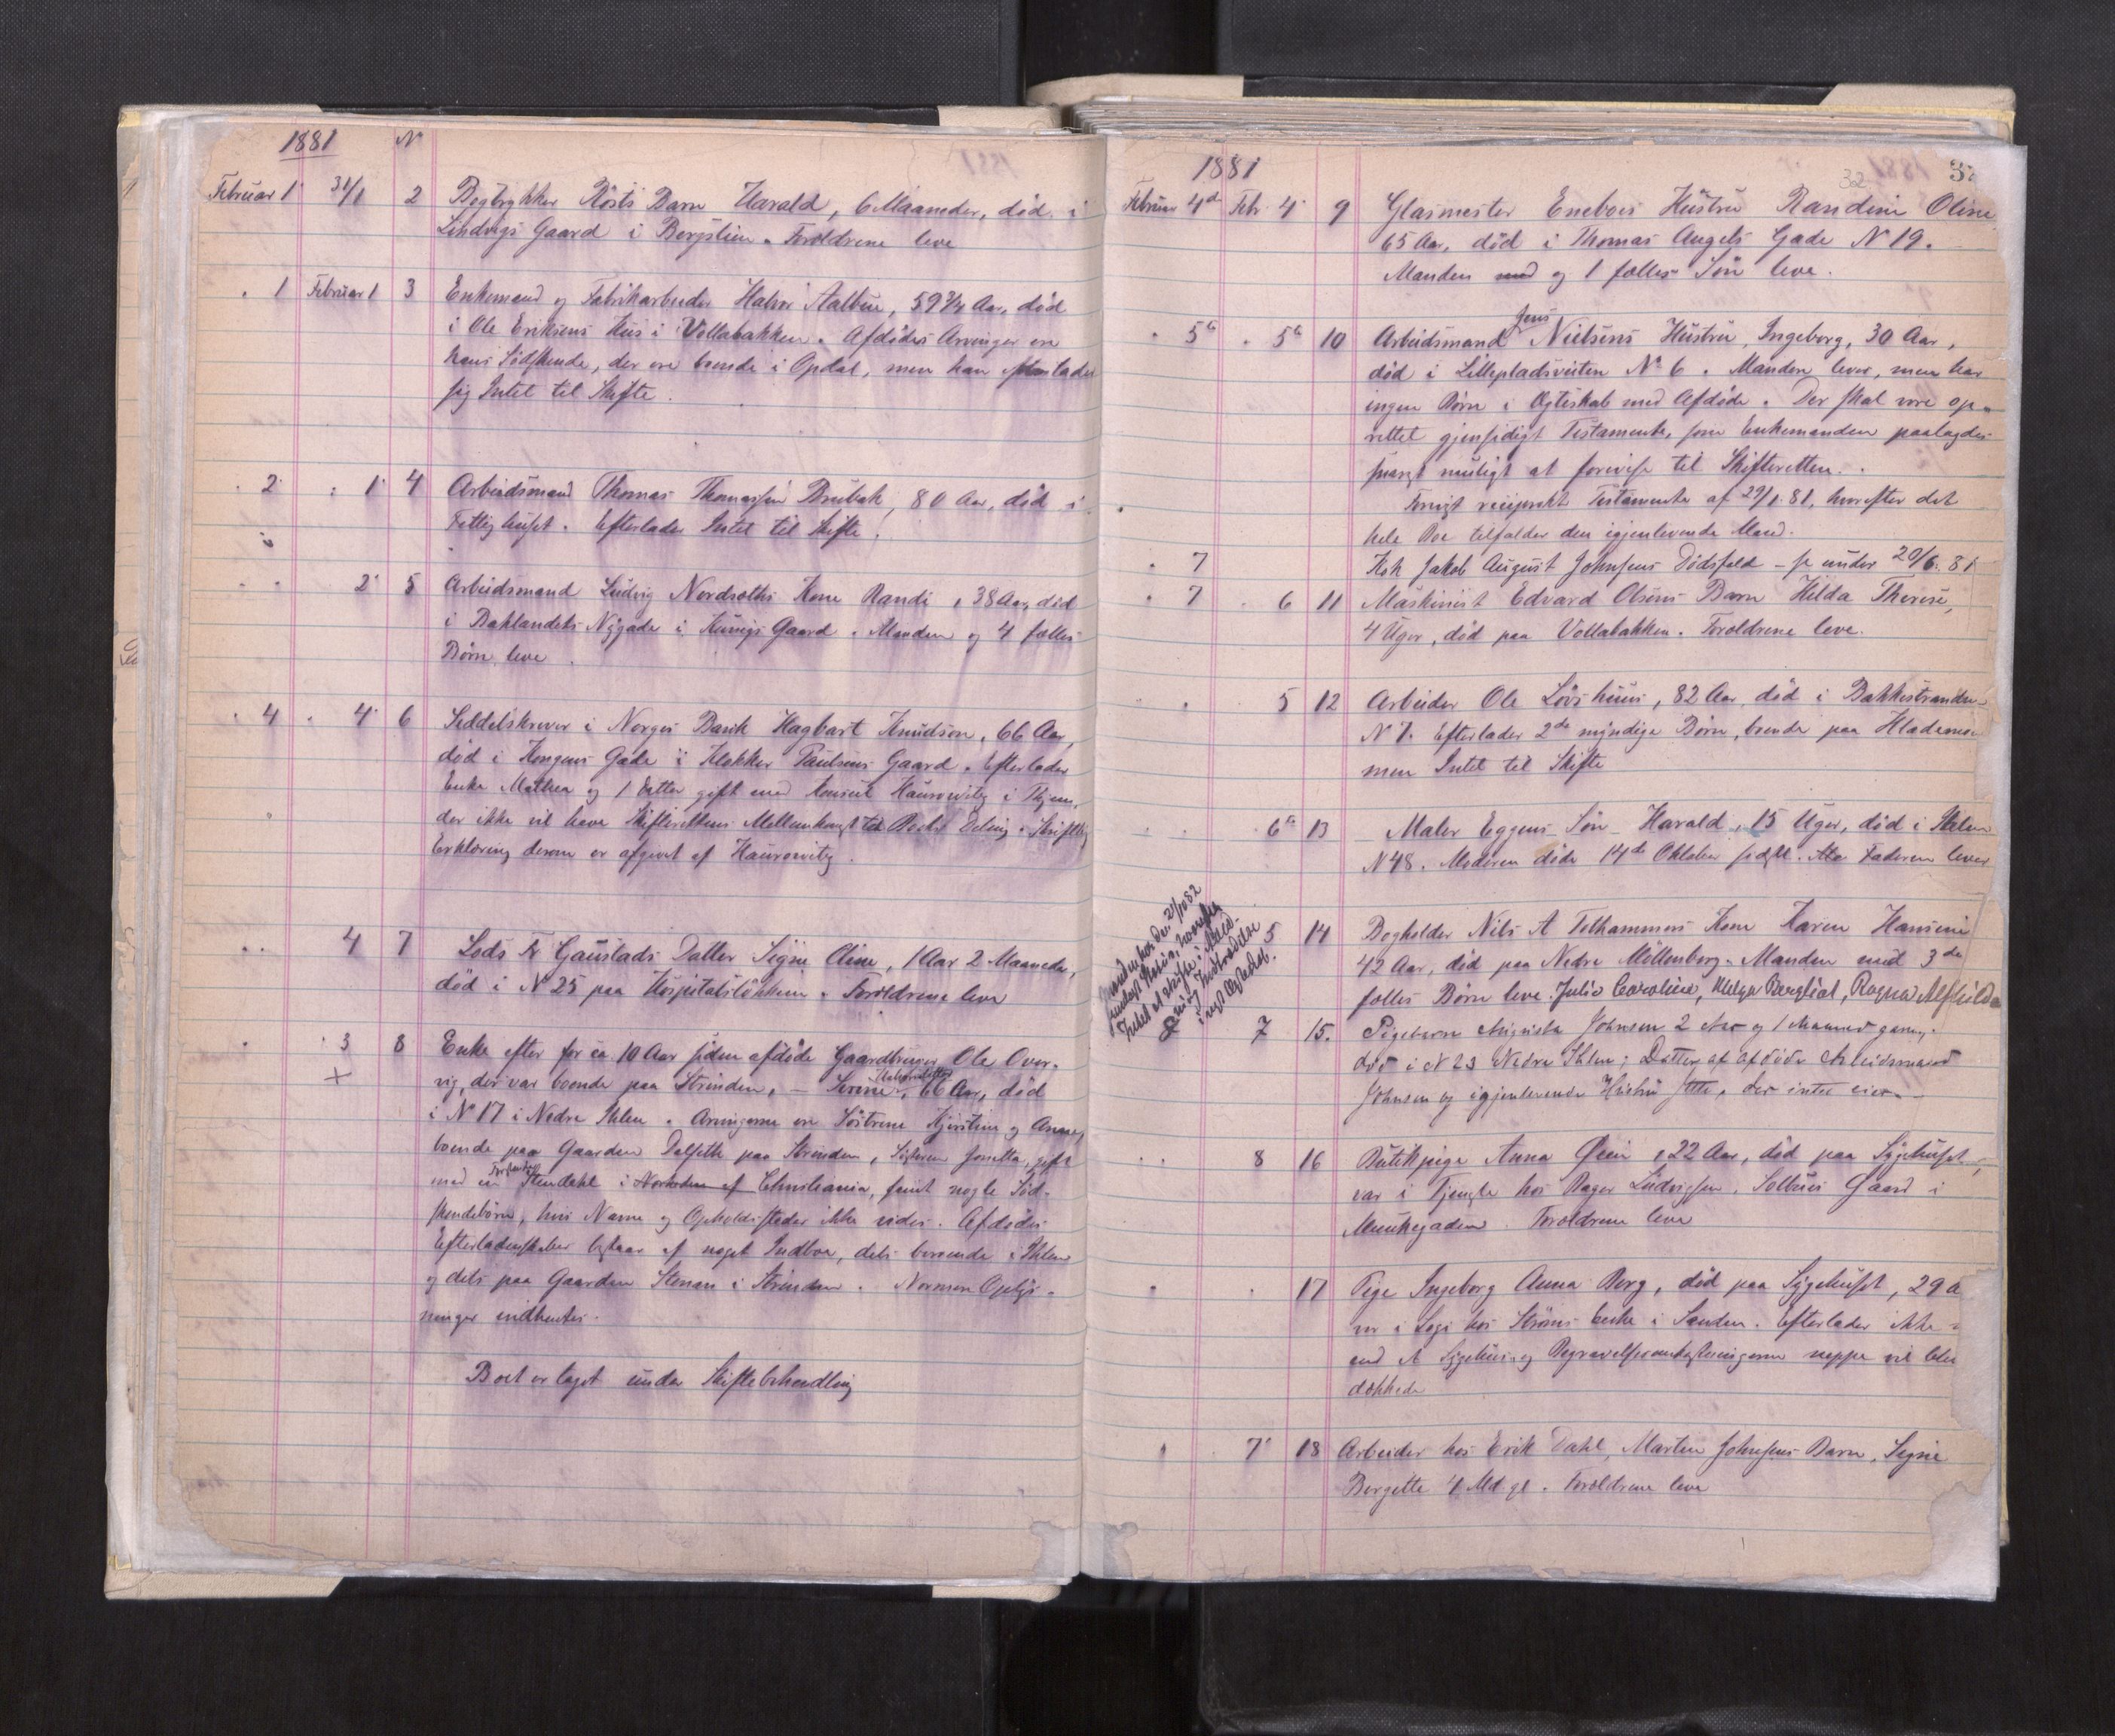 1881 N
Februar 1 31/1 2 Bogtrykker Rösts Barn Harald, 6 Maaneder, död i
Lindvigs Gaard i Bergslien. Forældrene leve
" 1 Februar 1 3 Enkemand og Fabrikarbeider Halvor Aalbue, 59 3/4 Aar, död
i Ole Eriksens Hus i Vollabakken. Afdödes Arvinger ere
hans Södskende, der ere boende i Opdal, men han efterlader
sig Intet til Skifte.
" 2 " 1 4 Arbeidsmand Thomas Thomassen Brubak, 80 Aar, död i
Fattighuset. Efterlader Intet til Skifte.
" " 2 5 Arbeidsmand Ludvig Nordsæths Kone Randi, 38 Aar, död
i Baklandets Nÿgade i Gaard. Manden og 4 fælles
Börn leve.
" 4 " 4 6 Seddelskriver i Norges Bank Hagbart Knudson, 66 Aar,
död i Kongens Gade i Klokker Paulsens Gaard. Efterlader
Enke Mathea og 1 Datter gift med Konsul Haurowitz i
der ikke vil have Skifterettens Mellemkomst til Boets Deling. Skriftlig
Erklæring derom er afgivet af Haurowitz.
" " 4 7 Lods Fr Gaustads Datter Signe Oline, 1 Aar 2 Maaneder,
död i N 25 paa Hospitalslökken. Forældrene leve
" " 3 8 Enke efter for ca. 10 Aar siden afdöde Gaardbruger Ole Over-
+ vig, der var boende paa Strinden, – Serine, 66 Aar, död
i N 17 i Nedre Ihlen. Arvingerne ere Söstrene Kjerstine og Anne,
boende paa Gaarden Dalseth paa Strinden, Sösteren Jonetta, gift
med en Stendahl i Christiania, samt nogle Söd-
skendebörn, hvis Navne og Opholdssteder ikke vides. Afdödes
Efterladenskaber bestaar af noget Indboe, dels beroende i Ihlen
og dels paa Gaarden Stenan i Strinden. Nærmere Oplys-
ninger indhentes.
Boet er taget under Skiftebehandling
1881 32
Februar 4de Febr. 4 9 Glasmester Enebos Hustru Randine Oline
65 Aar, död i Thomas Angels Gade N 19.
Manden med og 1 fælles Sön leve.
" 5te " 5te 10 Arbeidsmand Jens Nielsens Hustru, Ingeborg, 30 Aar,
död i Lillepladsveiten No 6. Manden lever, men har
ingen Börn i Ægteskab med Afdöde. Der skal være op-
rettet gjensidigt Testamente, som Enkemanden paalagdes
snarest muligt at forevise til Skifteretten.
Forevist reciprokt Testamente af 29/1. 81, hvorefter det
hele Boe tilfalder den igjenlevende Mand.
" 7 Kok Jakob August Johnsens Dödsfald – se under 20/6. 81
" 7 " 6 11 Maskinist Edvard Olsens Barn Hilda Therese,
4 Uger, död paa Vollabakken. Forældrene leve.
" " 5 12 Arbeider Ole Lövshuus, 82 Aar, död i Bakkestranden
N 7. Efterlader 2de myndige Börn, boende paa
men Intet til Skifte
" " 6te 13 Maler Eggens Sön Harald, 15 Uger, död i Ihlen
N 48. Moderen döde 14de Oktober sidstl. Faderen lever
Manden har den 21/10 82
Intet at skifte i
5 14 Bogholder Nils A Tolhammers Kone Karen Hansine
42 Aar, död paa Nedre Möllenberg. Manden med 3de
fælles Börn leve. Julie Caroline, Helga Bergliot, Ragna Alfhilda
7 15. Pigebarn Augusta Johnsen 2 Aar og 1 Maaned gammel,
död i N 23 Nedre Ihlen; Datter af afdöde Arbeidsmand
Johnsen og igjenlevende Hustru, der intet eier.
" " 8 16 Butikpige Anna Öien, 22 Aar, död paa Sygehuset,
var i Tjeneste hos Bager Ludvigsen, Solbues Gaard i
Munkegaden. Forældrene leve
" " 17 Pige Ingeborg Anna Berg, död paa Sygehuset, 29 A
var i Logi hos Ströms Enke i Sanden. Efterlader ikke
end At Sygehus- og Begravelsesomkostningerne neppe vil blive
dækkede
" " 7 18 Arbeider hos Erik Dahl, Martin Johnsens Barn, Signe
Bergette 4 Md. gl. Forældrene leve